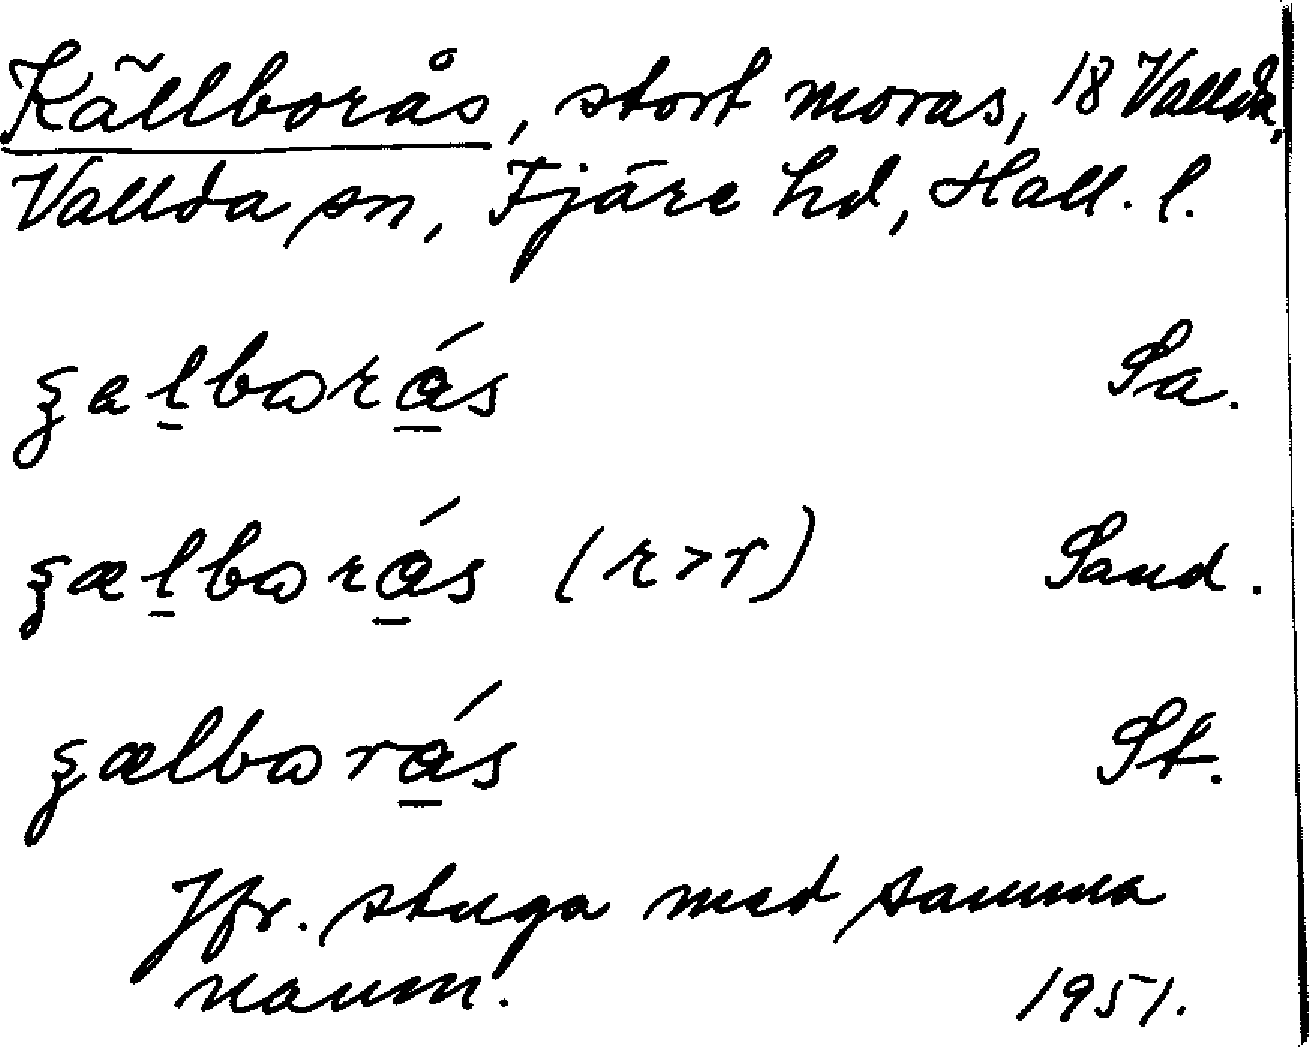 Källborås, stort moras, 18 Vallda,
Vallda sn, Fjäre hd, Hall. l.
ʒalbɷrás Sa.
ʒælbɷrás (ɾ>r) Sand.
ʒælbɷrás St.
Jfr. stuga med samma
namn. 1951.